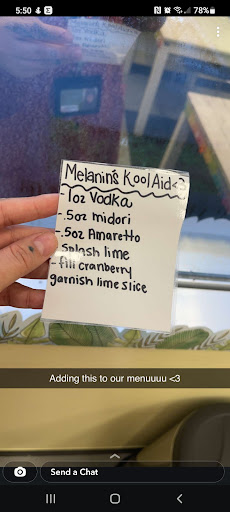 5:50
78%
Melanin's Kool Aid <3
- 1oz Vodka
- .5oz midori
- .5oz Amaretto
Splash lime
- fill cranberry
garnish lime slice
Adding this to our menuuuu <3
Send a Chat